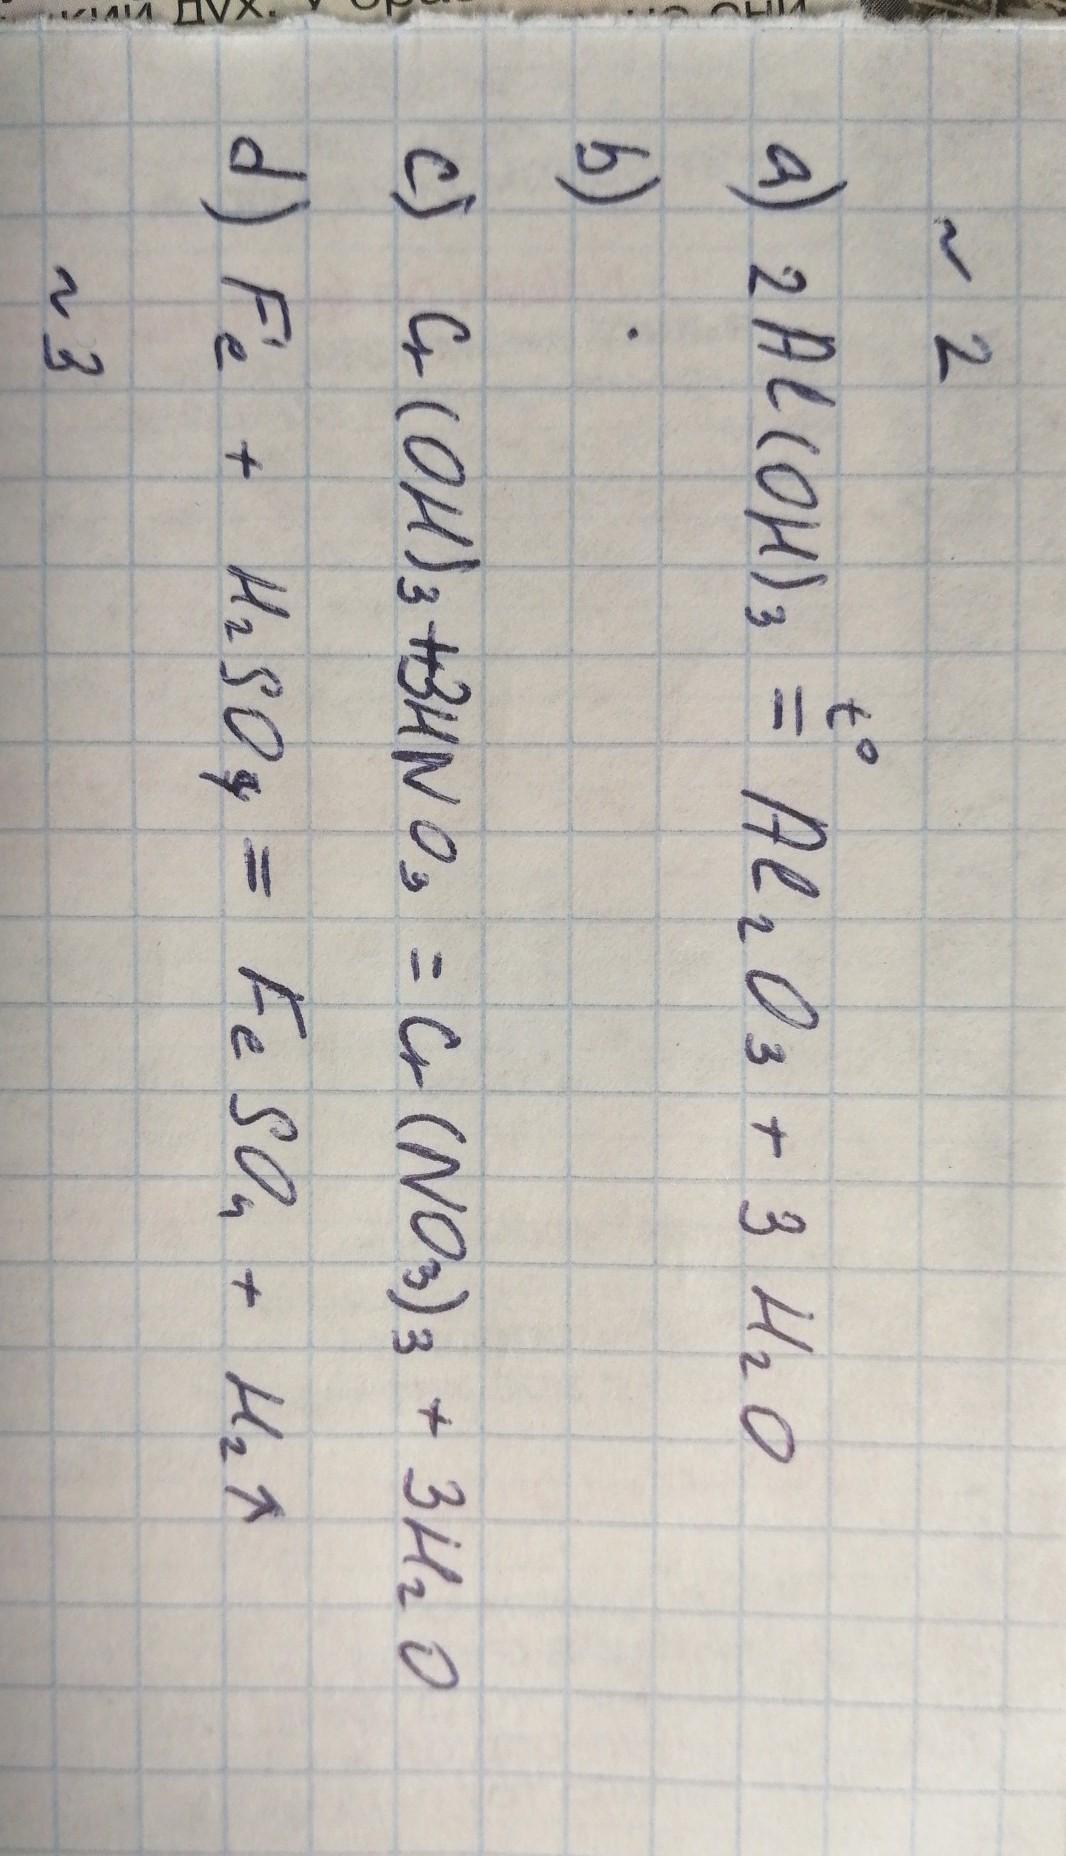 кий дух. У
не они
~ 2
a) 2Al(OH)₃ =ᵗ° Al₂O₃ + 3H₂O
b) .
c) Cr(OH)₃+3HNO₃ = Cr(NO₃)₃ + 3H₂O
d) Fe + H₂SO₄ = FeSO₄ + H₂↑
~ 3